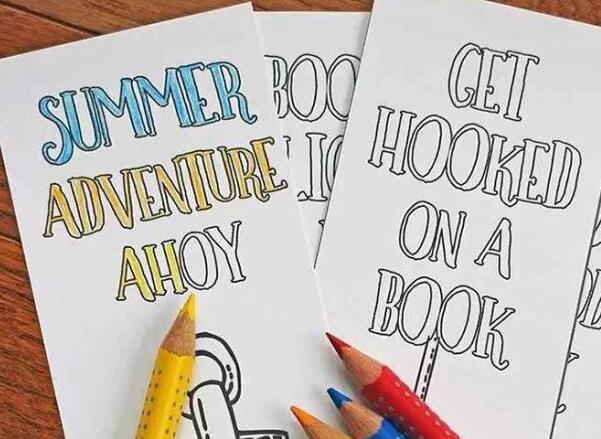 SUMMER
ADVENTURE
AHOY
GET
HOOKED
ON A
BOOK